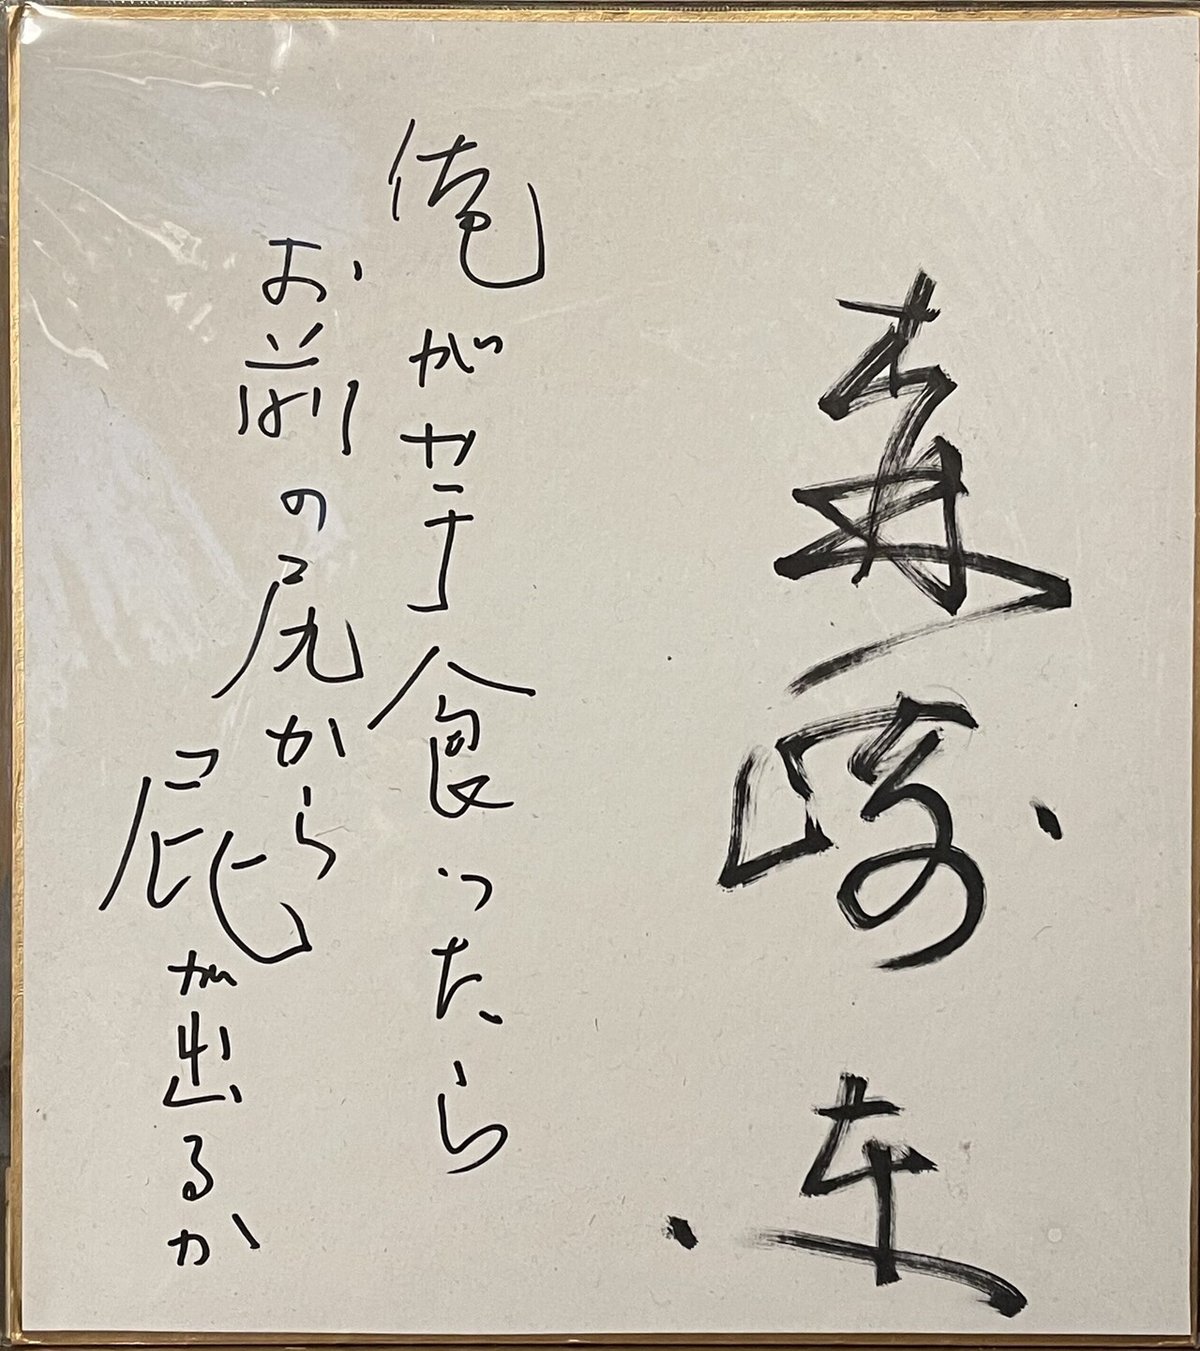 森崎東
俺が芋食ったら
お前の尻から
屁が出るか